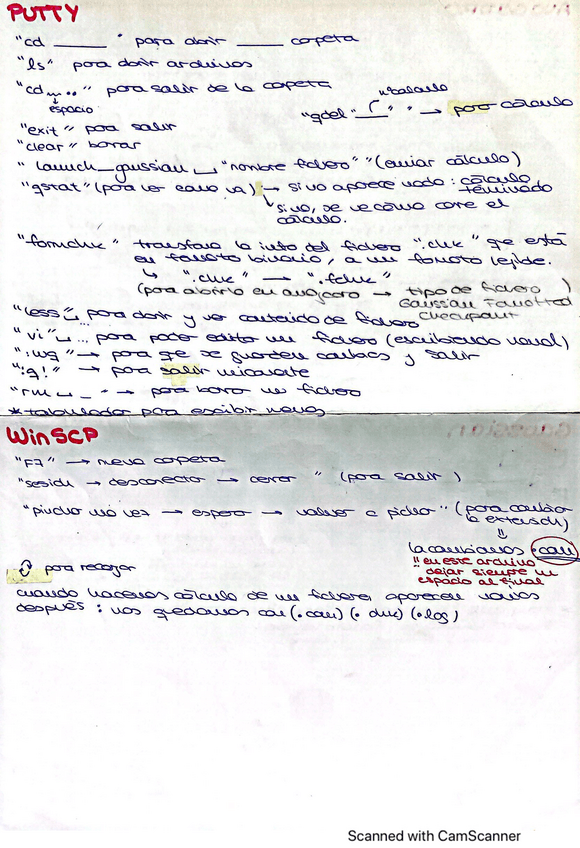 PUTTY
"cd ______" para abrir _____ carpeta
"ls" para abrir archivos
"cd ..." para salir de la carpeta
espacio
nº cálculo
"qdel" ___ " " → para cálculo
"exit" para salir
"clear" borrar
"launch_gaussian ␣ "nombre fichero" "(enviar cálculo)
"qstat" (para ver como va) → si no aparece nada: cálculo terminado
si no, se ve cómo corre el cálculo.
"formchk" transforma la info del fichero ".chk" que está
en formato binario, a un formato legible.
↳ ".chk" → ".fchk"
(para abrirlo en avogadro → tipo de fichero)
Gaussian Formatted
Checkpoint
"less ␣ para abrir y ver contenido de fichero
"vi" ␣ ... para poder editar un fichero (escribiendo normal)
":wq" → para qe se guarden cambios y salir
":q!" → para salir únicamente
"rm ␣ _ " → para borrar un fichero
*tabulador para escribir menos
WinSCP
"F7" → nueva carpeta
"sesión → desconectar → cerrar " (para salir)
"pincho una vez → espero → volver a pichar" (para cambiar
la extensión)
⇓
la cambiamos .com
"en este archivo
dejar siempre un
espacio al final
para recargar
cuando hacemos cálculo de un fichero aparecen varios
después: nos quedamos con (.com) (.chk) (.log)
Scanned with CamScanner